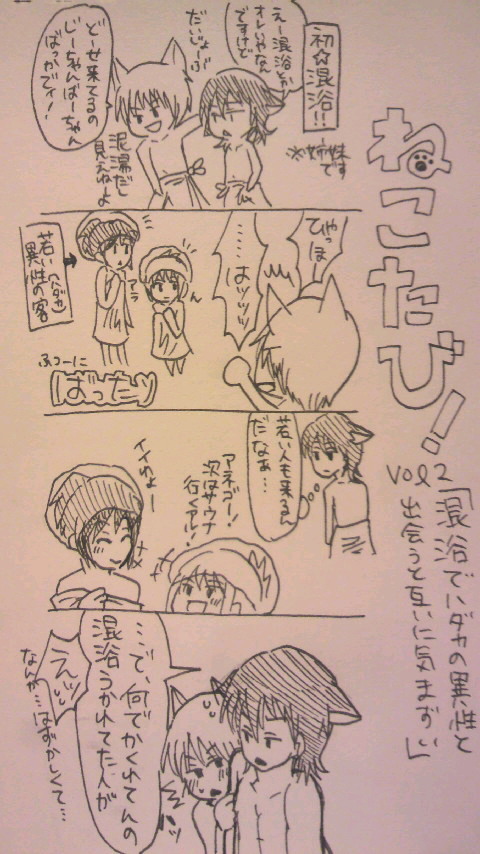 ねこたび!
vol2
「混浴でハダカの異性と
出会うと互いに気まずい」
初☆混浴!!
※姉妹
です
えー混浴とか
オレいやなん
ですけど
だいじょーぶ
どーせ来てるの
じーちゃんばーちゃん
ばっかでィ!
泥湯だし
見えねーよ
ひゃっほー
……はッッッ
アラ
ん
若い(ハダカ)
異性の客
ふつーに
ばったり
若い人も来るん
だなぁ…
アネゴー!
次はサウナ
行くべ!
イイわよー
…で、何でかくれてんの
混浴うかれてた人が
えッッ
なんか…はずかしくて…